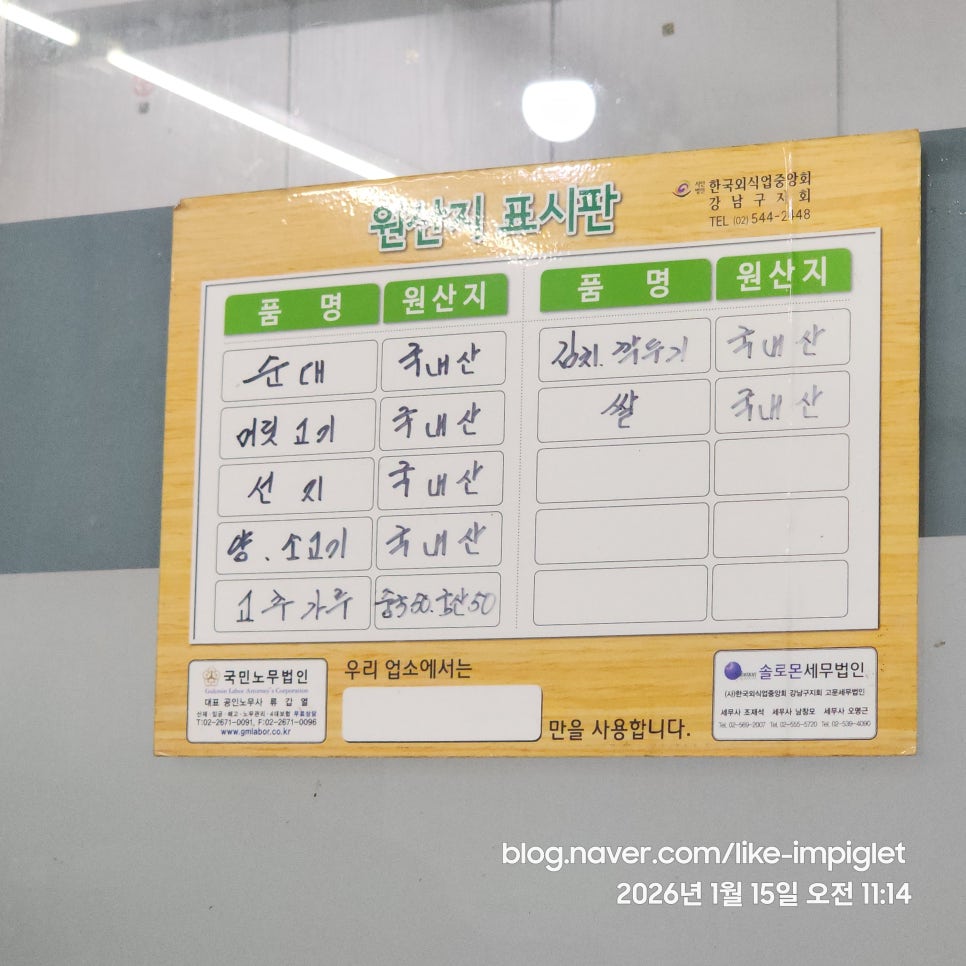 원산지 표시판
사단법인 한국외식업중앙회
강남구지회
TEL (02) 544-2448
품 명 원산지
순대 국내산
머릿고기 국내산
선지 국내산
양. 소고기 국내산
고추가루 중국50. 국산50
품 명 원산지
김치. 깍두기 국내산
쌀 국내산
국민노무법인
Gukmin Labor Attorney's Corporation
대표 공인노무사 류 갑 열
산재·임금·해고·노무관리·4대보험 무료상담
T:02-2671-0091, F:02-2671-0096
www.gmlabor.co.kr
우리 업소에서는
만을 사용합니다.
솔로몬세무법인
(사)한국외식업중앙회 강남구지회 고문세무법인
세무사 조재석 세무사 남창모 세무사 오명근
Tel. 02-569-2007 Tel. 02-555-5720 Tel. 02-539-4090
blog.naver.com/like-impiglet
2026년 1월 15일 오전 11:14